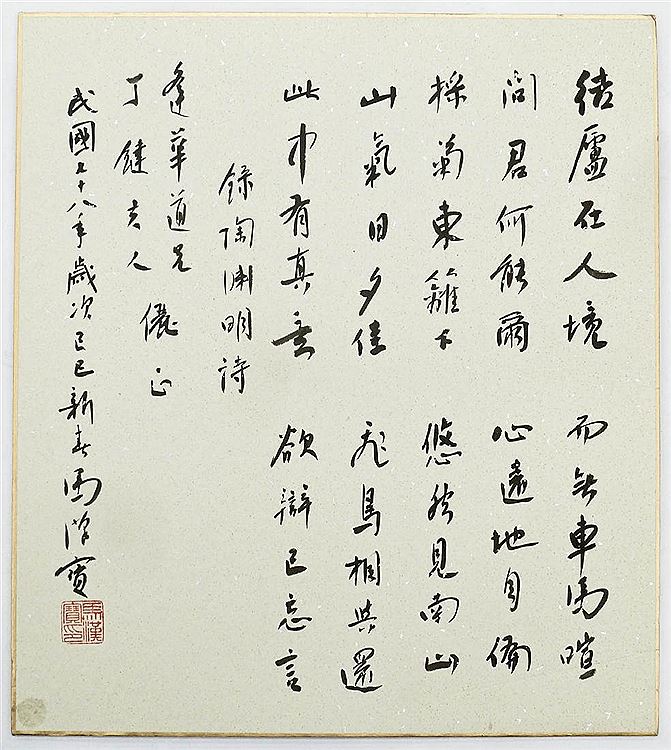 結廬在人境 而無車馬暄
問君何能爾 心遠地自偏
採菊東籬下 悠然見南山
山氣日夕佳 飛鳥相與還
此中有真意 欲辯已忘言
錄陶淵明詩
逢華道兄
丁鍵夫人
儷正
民國七十八年歲次己巳新春馬漢寶
馬漢寶印